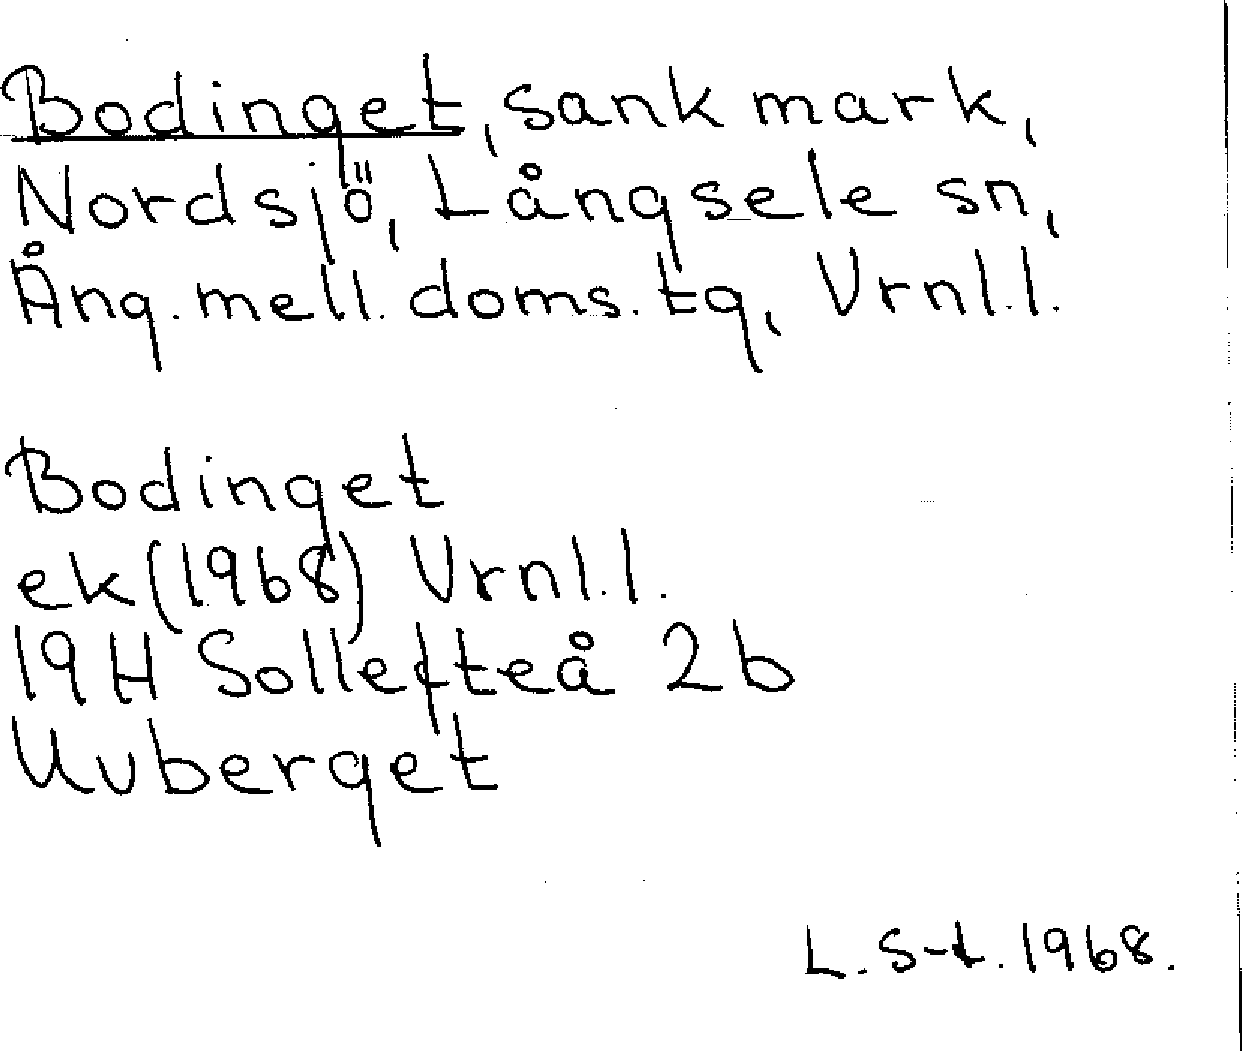 Bodinget, sank mark,
Nordsjö, Långsele sn,
Ång. mell. doms. tg, Vrnl.l.
Bodinget
ek (1968) Vrnl.l.
19H Sollefteå 2b
Uvberget
L. S-t. 1968.